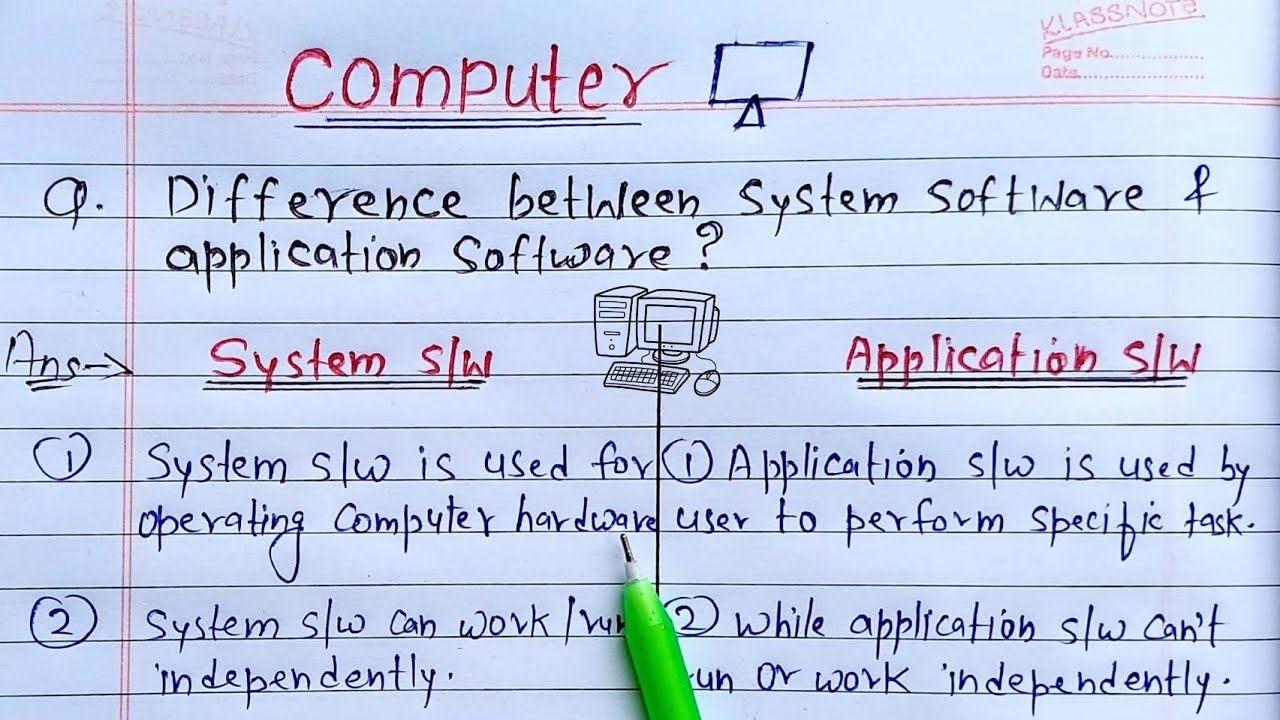 KLASSNOTE
Page No.
Date
Computer
Q. Difference between System Software &
application Software?
Ans→ System S/W Application S/W
① System s/w is used for
operating Computer hardware
① Application s/w is used by
user to perform specific task.
② System s/w can work/run
independently.
② While application s/w can't
run or work independently.